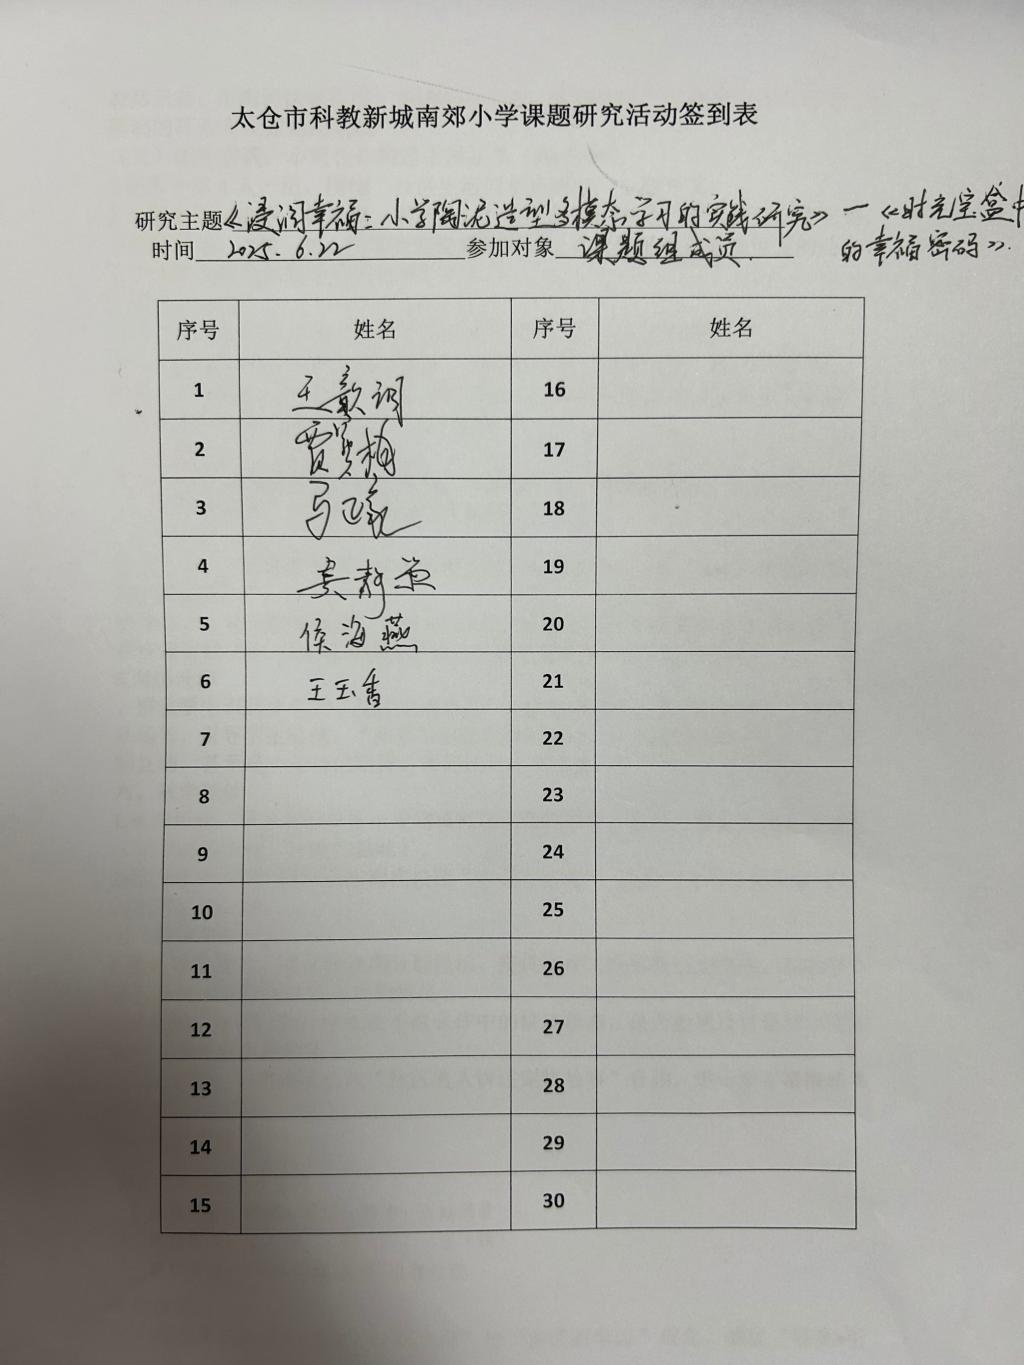 太仓市科教新城南郊小学课题研究活动签到表
研究主题《浸润幸福：小学陶泥造型多模态学习的实践研究》—《时光宝盒中
的幸福密码》.
时间 2025.6.22 参加对象 课题组成员.
序号 姓名 序号 姓名
1 王歆词 16
2 贾贤梅 17
3 马 18
4 龚静 19
5 侯海燕 20
6 王玉香 21
7 22
8 23
9 24
10 25
11 26
12 27
13 28
14 29
15 30